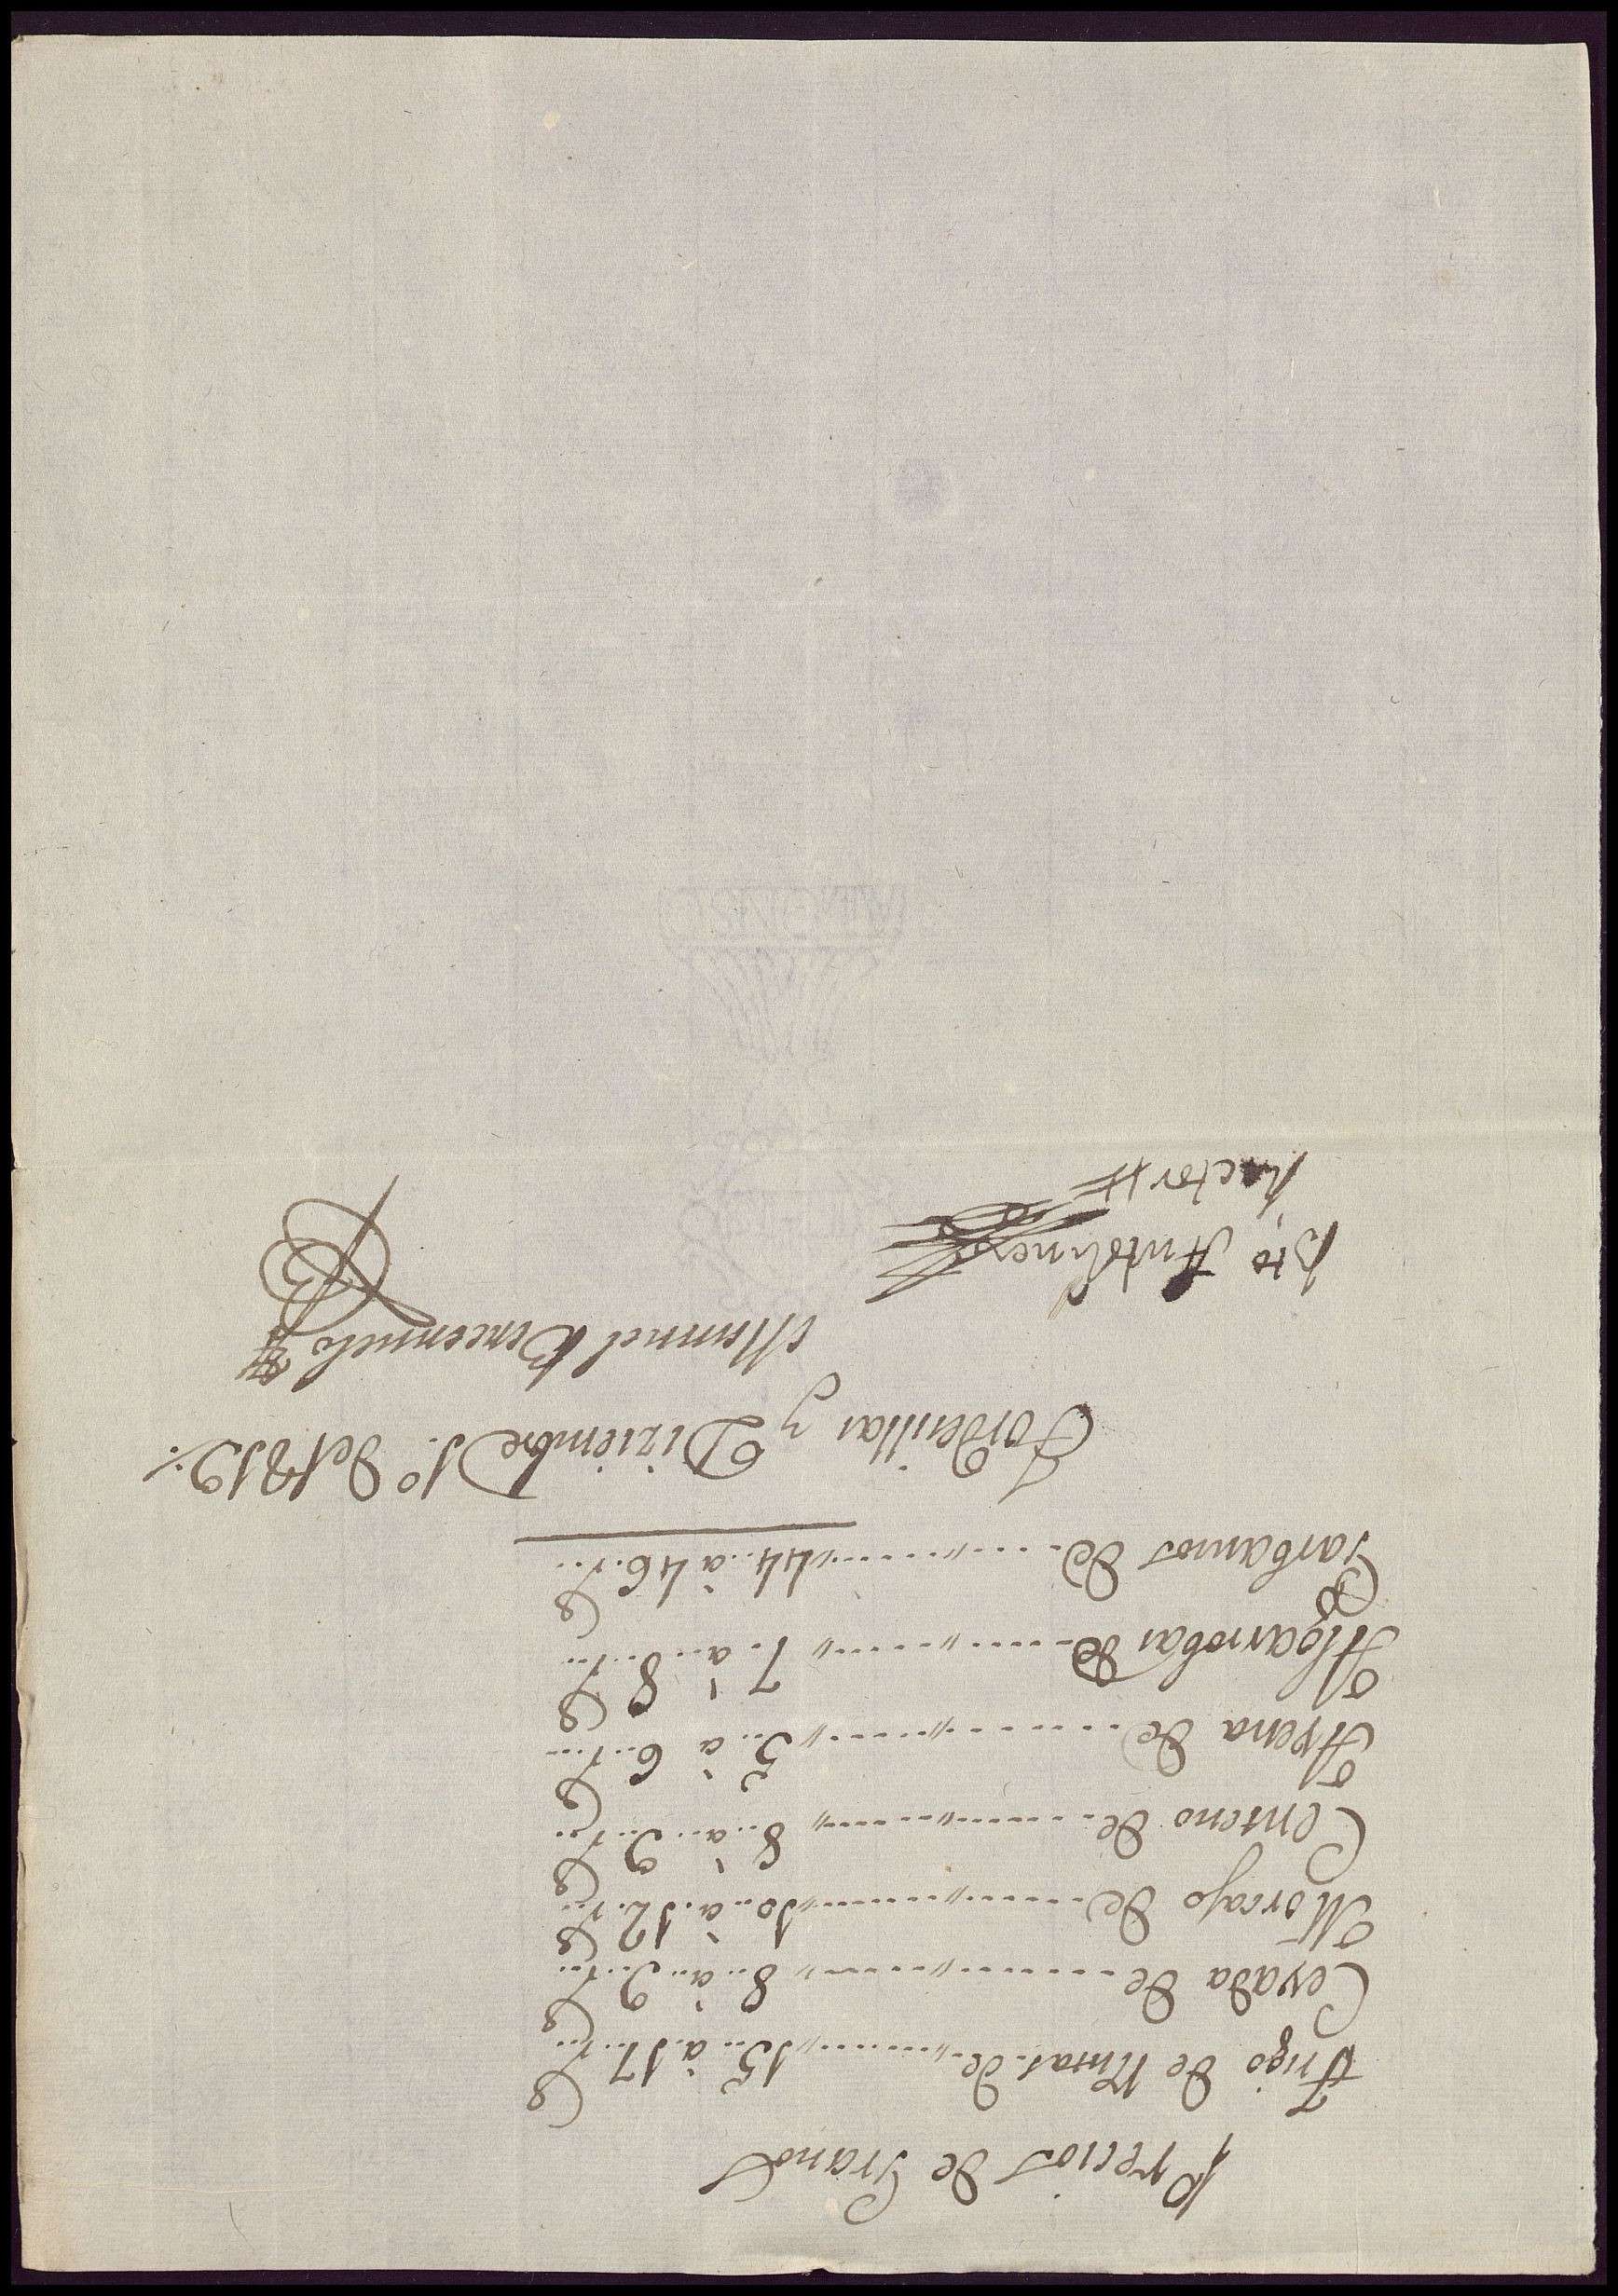 Precios de Granos
Trigo de Rivas. de 15. à 17. rs.
Cevada de 8. à. 9. rs.
Morcajo de 10. à. 12. rs.
Centeno de 8. à. 9. rs.
Avena de 5. à 6. rs.
Algarrobas de 7. à. 8. rs.
Garbanzos de 44. à 46. rs.
Tordesillas y Diziembre 1º. de 1819.
Manuel
Antolinez